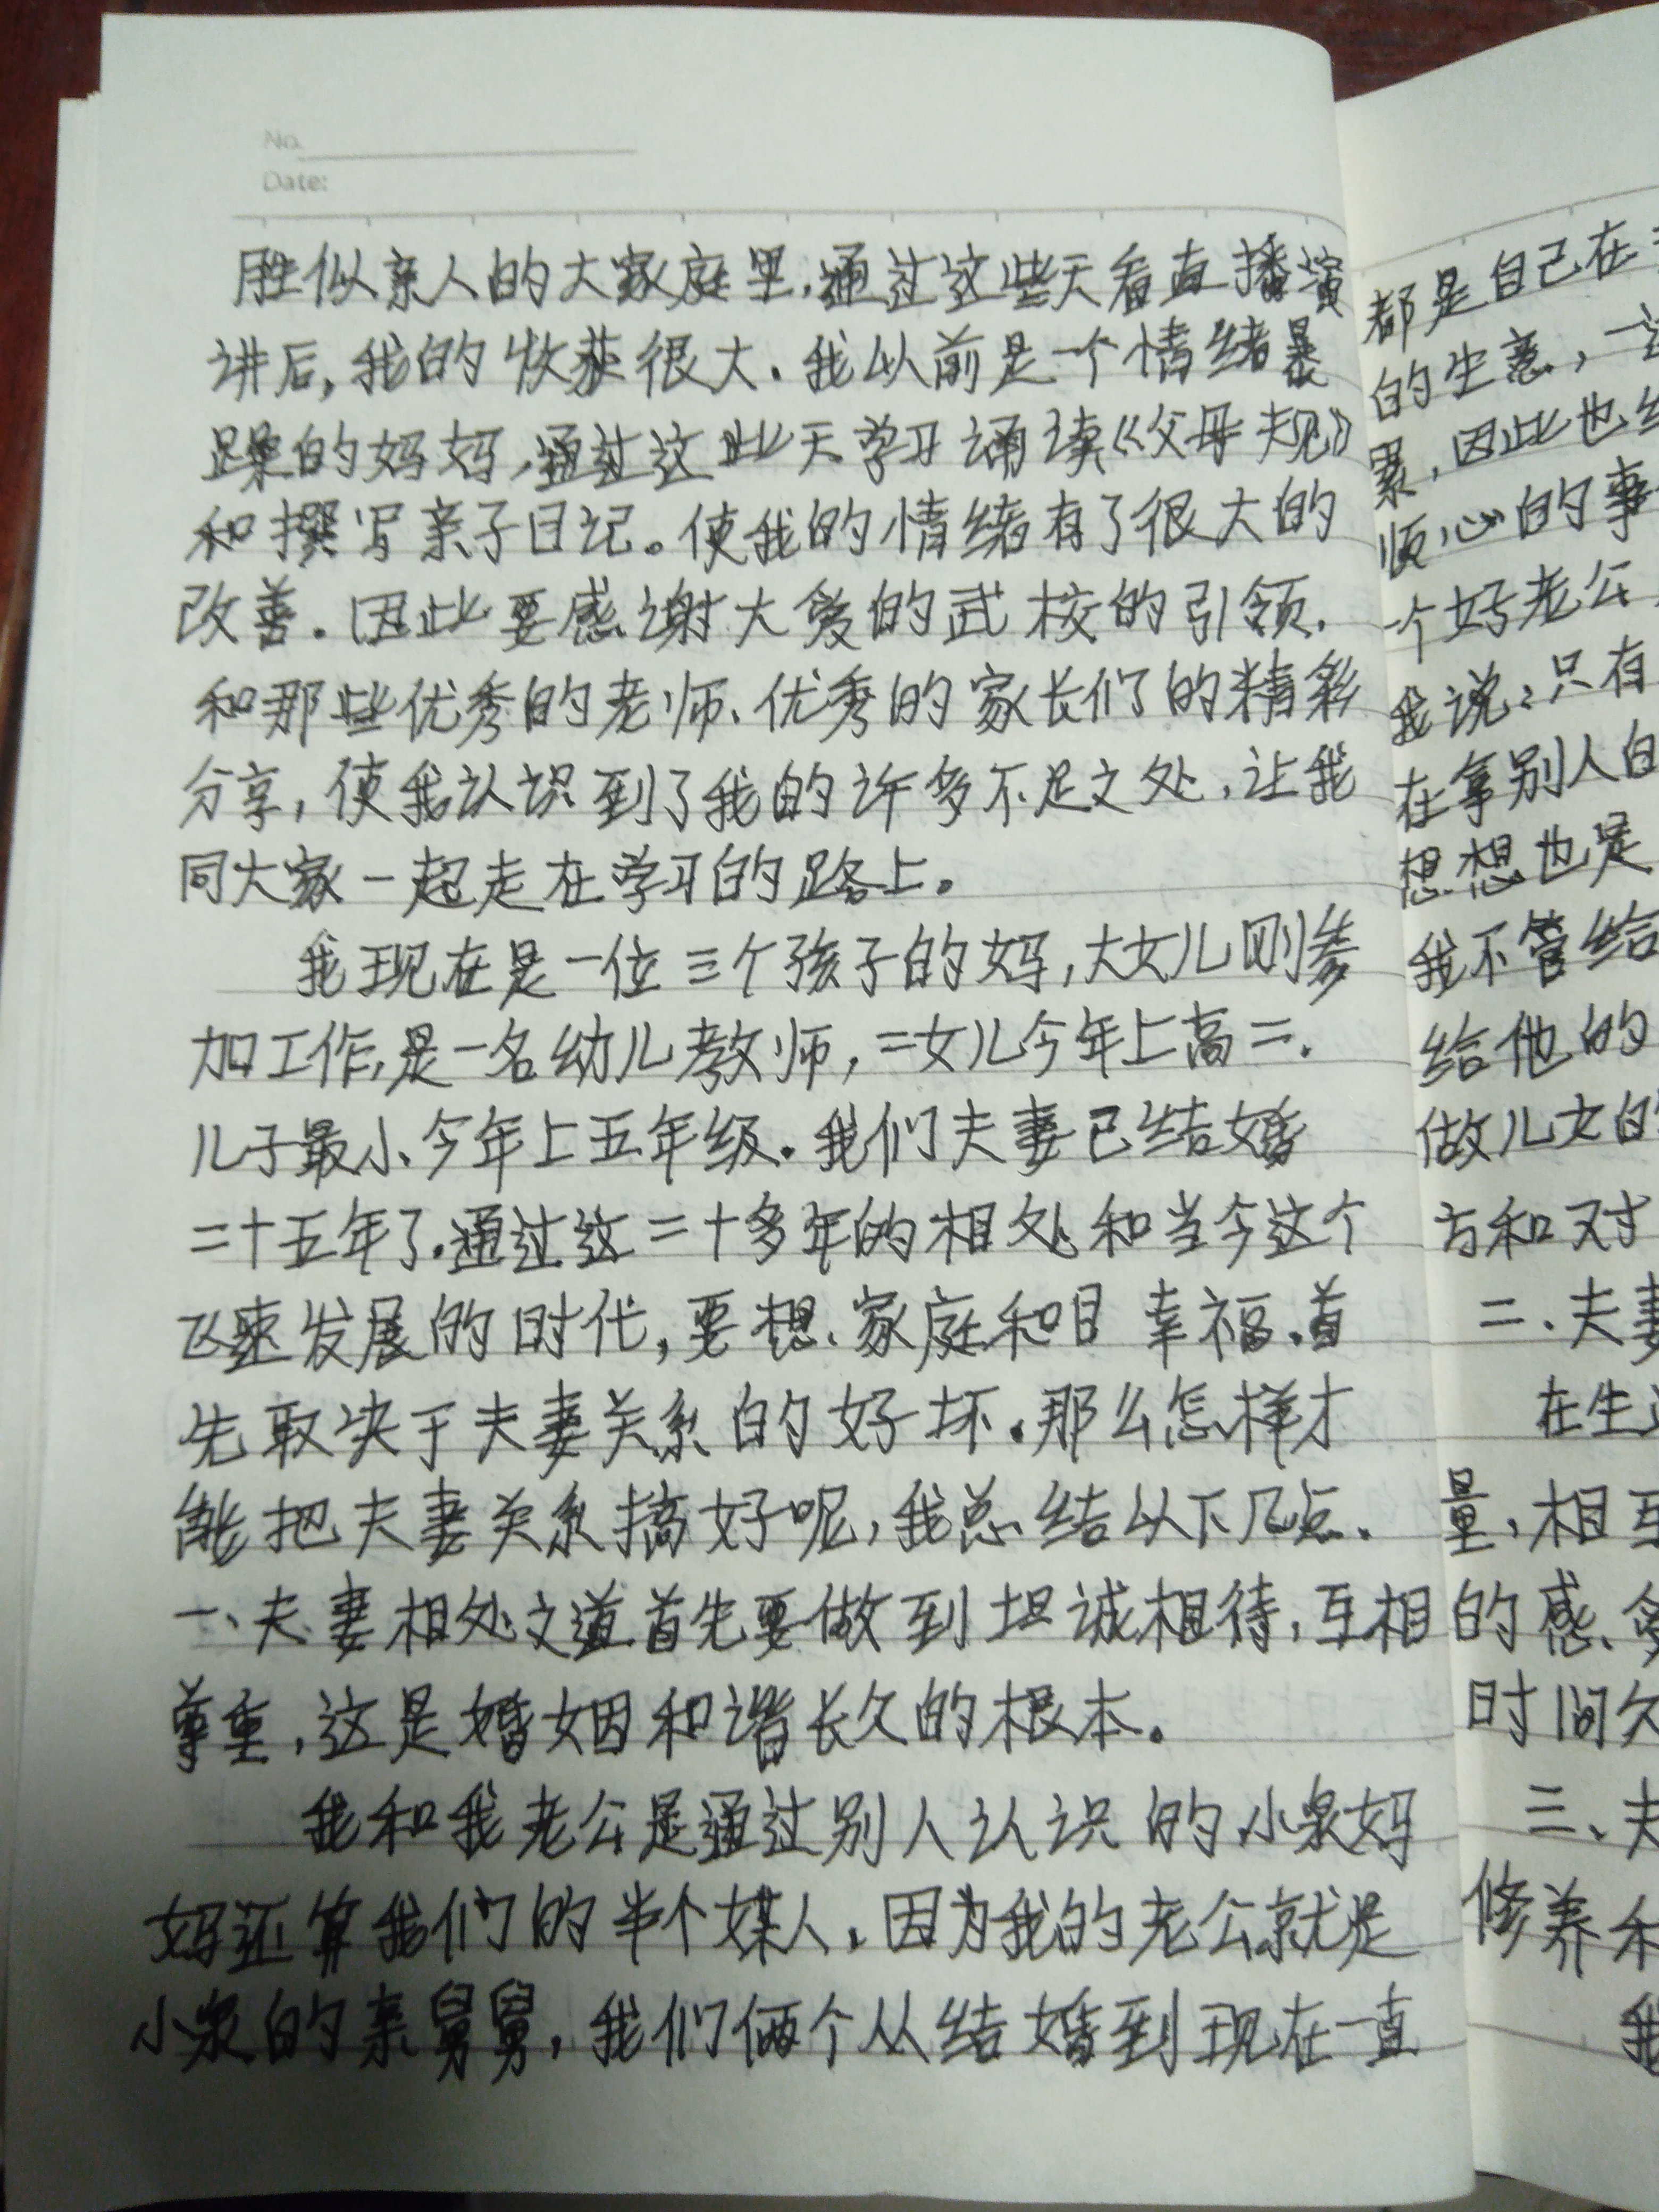 No.
Date:
胜似亲人的大家庭里,通过这些天看直播演
讲后,我的收获很大.我以前是一个情绪暴
躁的妈妈,通过这些天学习诵读《父母规》
和撰写亲子日记。使我的情绪有了很大的
改善.因此要感谢大爱的武校的引领.
和那些优秀的老师、优秀的家长们的精彩
分享,使我认识到了我的许多不足之处,让我
同大家一起走在学习的路上。
我现在是一位三个孩子的妈,大女儿刚参
加工作,是一名幼儿教师,二女儿今年上高二.
儿子最小、今年上五年级.我们夫妻已结婚
二十五年了.通过这二十多年的相处和当今这个
飞速发展的时代,要想家庭和目幸福.首
先取决于夫妻关系的好坏.那么怎样才
能把夫妻关系搞好呢,我总结以下几点.
一、夫妻相处之道首先要做到坦诚相待,互相
尊重,这是婚姻和谐长久的根本。
我和我老公是通过别人认识的.小泉妈
妈还算我们的半个媒人.因为我的老公就是
小泉的亲舅舅,我们俩个从结婚到现在一直
都是自己在
的生意,一
累,因此也
烦心的事
个好老公
我说:只有
在拿别人
想想也是
我不管给
给他的
做儿女的
方和对
二.夫妻
在生
量,相互
的感
时间久
三、夫
修养和
我